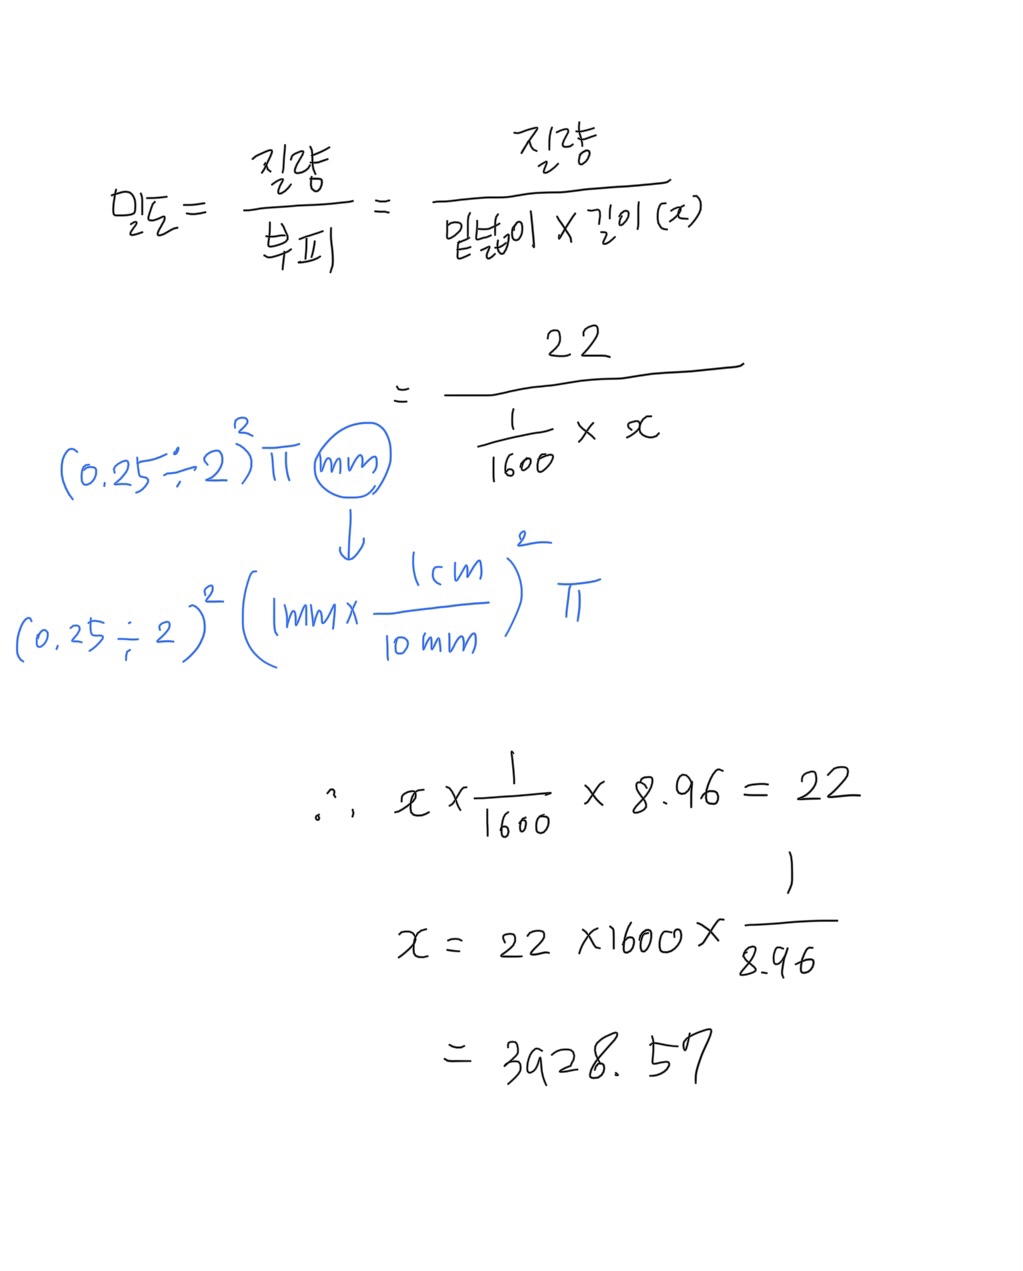 밀도 = 질량/부피 = 질량/(밑넓이 × 길이(x))
= 22/(1/1600 × x)
(0.25÷2)²π mm
↓
(0.25÷2)² (1mm × 1cm/10mm)² π
∴ x × 1/1600 × 8.96 = 22
x = 22 × 1600 × 1/8.96
= 3928.57